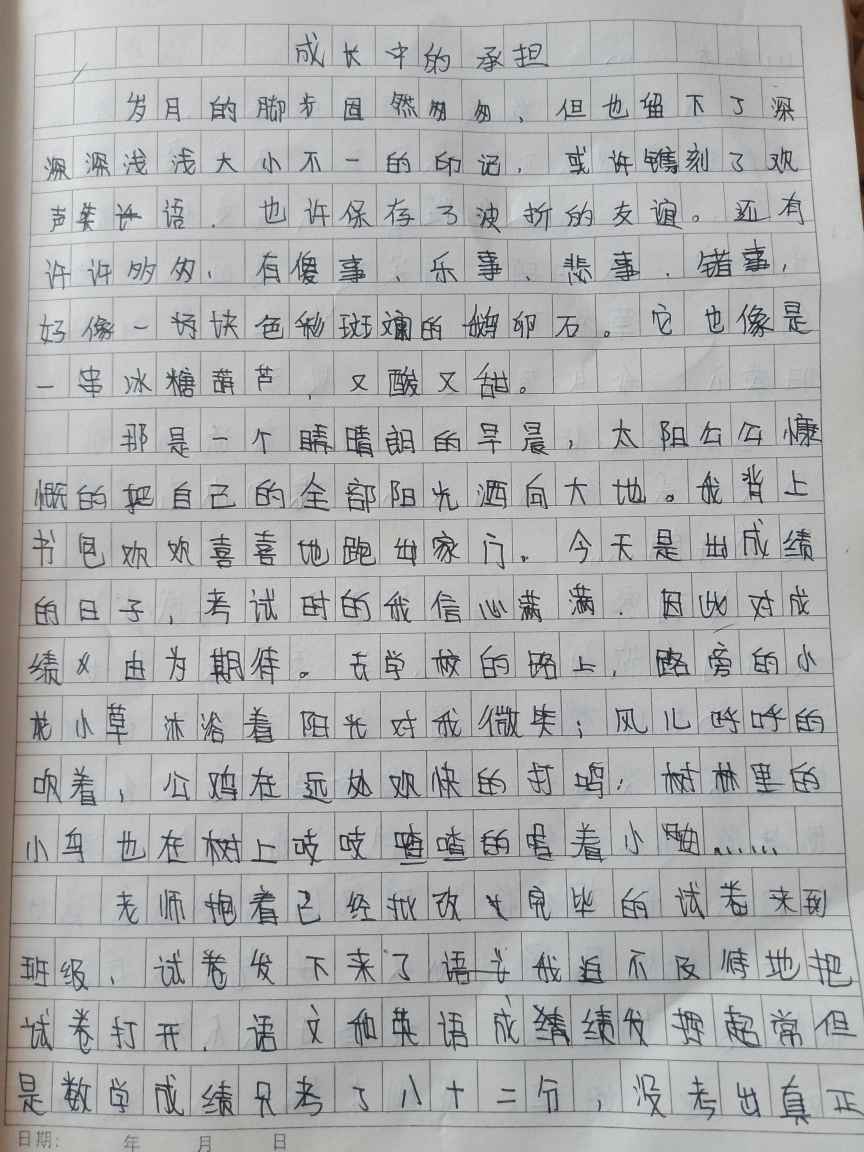 成长中的承担
岁月的脚步固然匆匆，但也留下了深
深深浅浅大小不一的印记，或许镌刻了欢
声笑语，也许保存了波折的友谊。还有
许许多多，有傻事、乐事、悲事、错事，
好像一块色彩斑斓的鹅卵石。它也像是
一串冰糖葫芦，又酸又甜。
那是一个晴晴朗的早晨，太阳公公慷
慨的把自己的全部阳光洒向大地。我背上
书包欢欢喜喜地跑出家门。今天是出成绩
的日子，考试时的我信心满满，因此对成
绩尤为期待。去学校的路上，路旁的小
花小草沐浴着阳光对我微笑；风儿呼呼的
吹着，公鸡在远处欢快的打鸣；树林里的
小鸟也在树上吱吱喳喳的唱着小曲……
老师抱着已经批改完毕的试卷来到
班级，试卷发下来了我迫不及待地把
试卷打开，语文和英语成绩发挥超常但
是数学成绩只考了八十二分，没考出真正
日期： 年 月 日